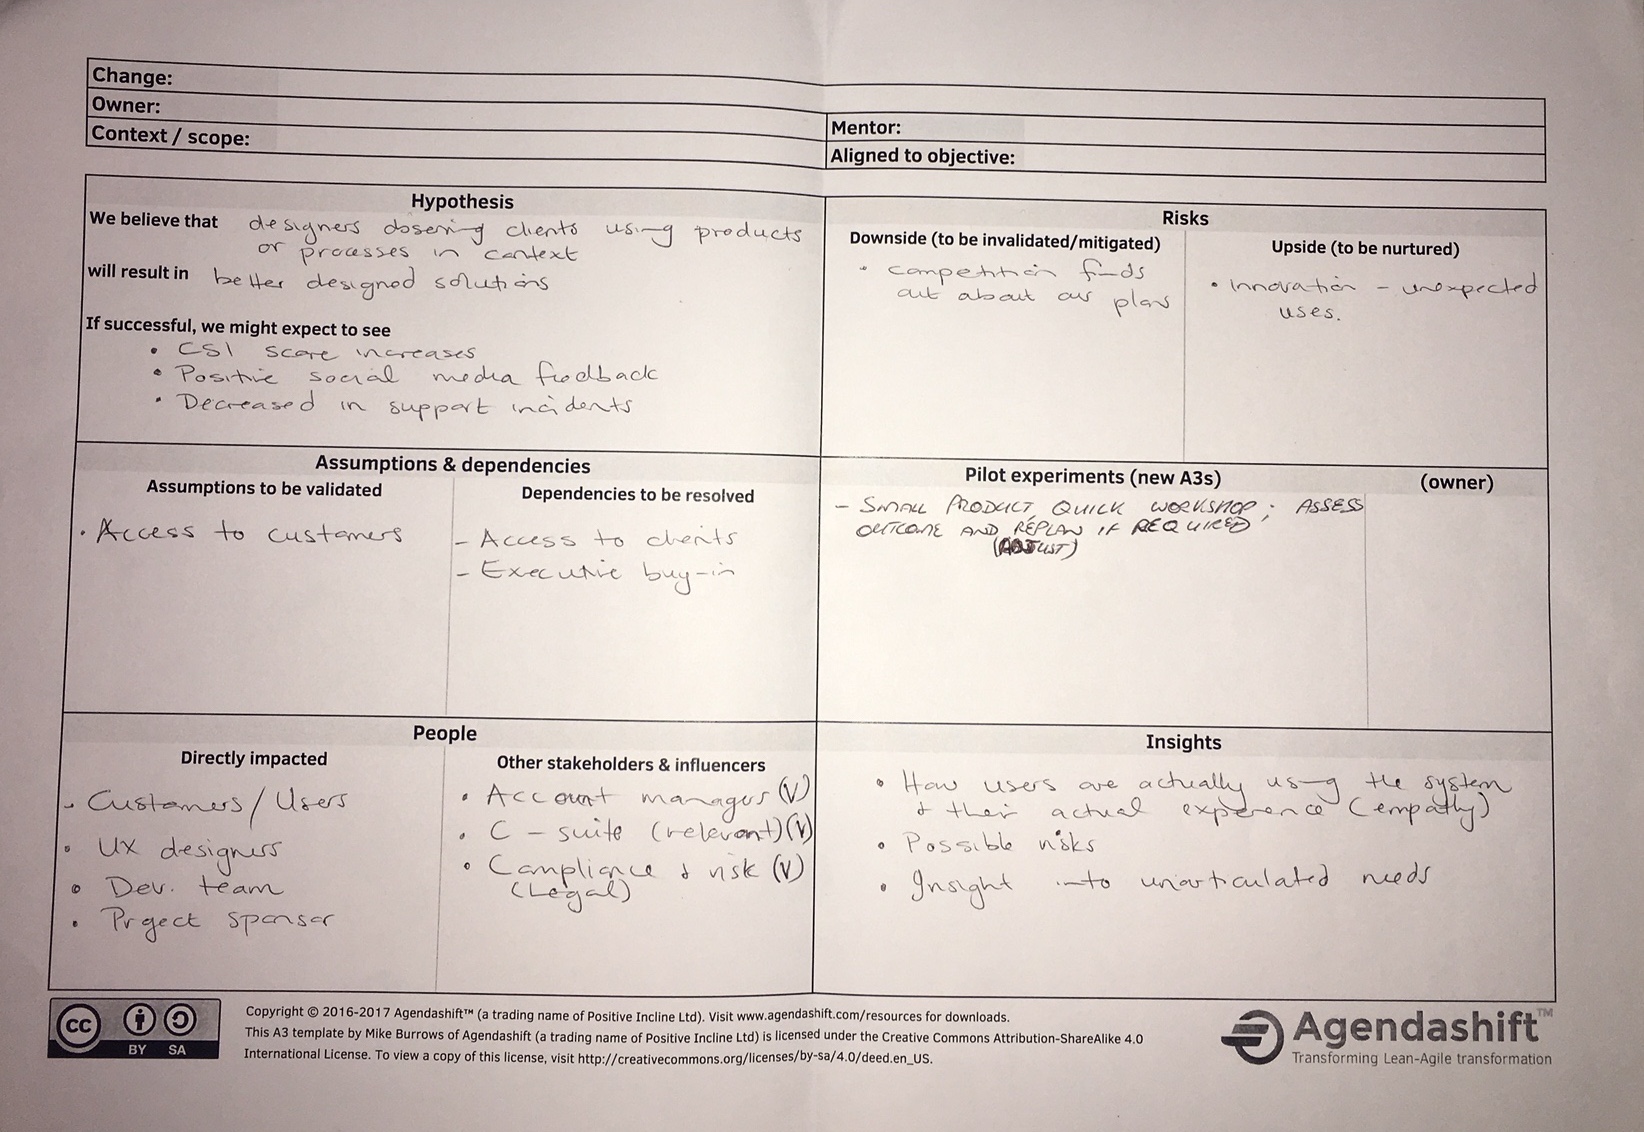 Change:
Owner:
Context / scope:
Mentor:
Aligned to objective:
Hypothesis
We believe that designers observing clients using products
or processes in context
will result in better designed solutions
If successful, we might expect to see
• CSI score increases
• Positive social media feedback
• Decreased in support incidents
Risks
Downside (to be invalidated/mitigated)
• Competition finds
out about our plans
Upside (to be nurtured)
• Innovation - unexpected
uses.
Assumptions & dependencies
Assumptions to be validated
• Access to customers
Dependencies to be resolved
- Access to clients
- Executive buy-in
Pilot experiments (new A3s)
(owner)
- SMALL PRODUCT, QUICK WORKSHOP; ASSESS
OUTCOME AND REPLAN IF REQUIRED
(ADJUST)
People
Directly impacted
- Customers/Users
• UX designers
• Dev. team
• Project sponsor
Other stakeholders & influencers
• Account managers (V)
• C-suite (relevant) (V)
• Compliance & risk (V)
(Legal)
Insights
• How users are actually using the system
& their actual experience (empathy)
• Possible risks
• Insight into unarticulated needs
CC BY SA
Copyright © 2016-2017 Agendashift™ (a trading name of Positive Incline Ltd). Visit www.agendashift.com/resources for downloads.
This A3 template by Mike Burrows of Agendashift (a trading name of Positive Incline Ltd) is licensed under the Creative Commons Attribution-ShareAlike 4.0
International License. To view a copy of this license, visit http://creativecommons.org/licenses/by-sa/4.0/deed.en_US.
Agendashift™
Transforming Lean-Agile transformation